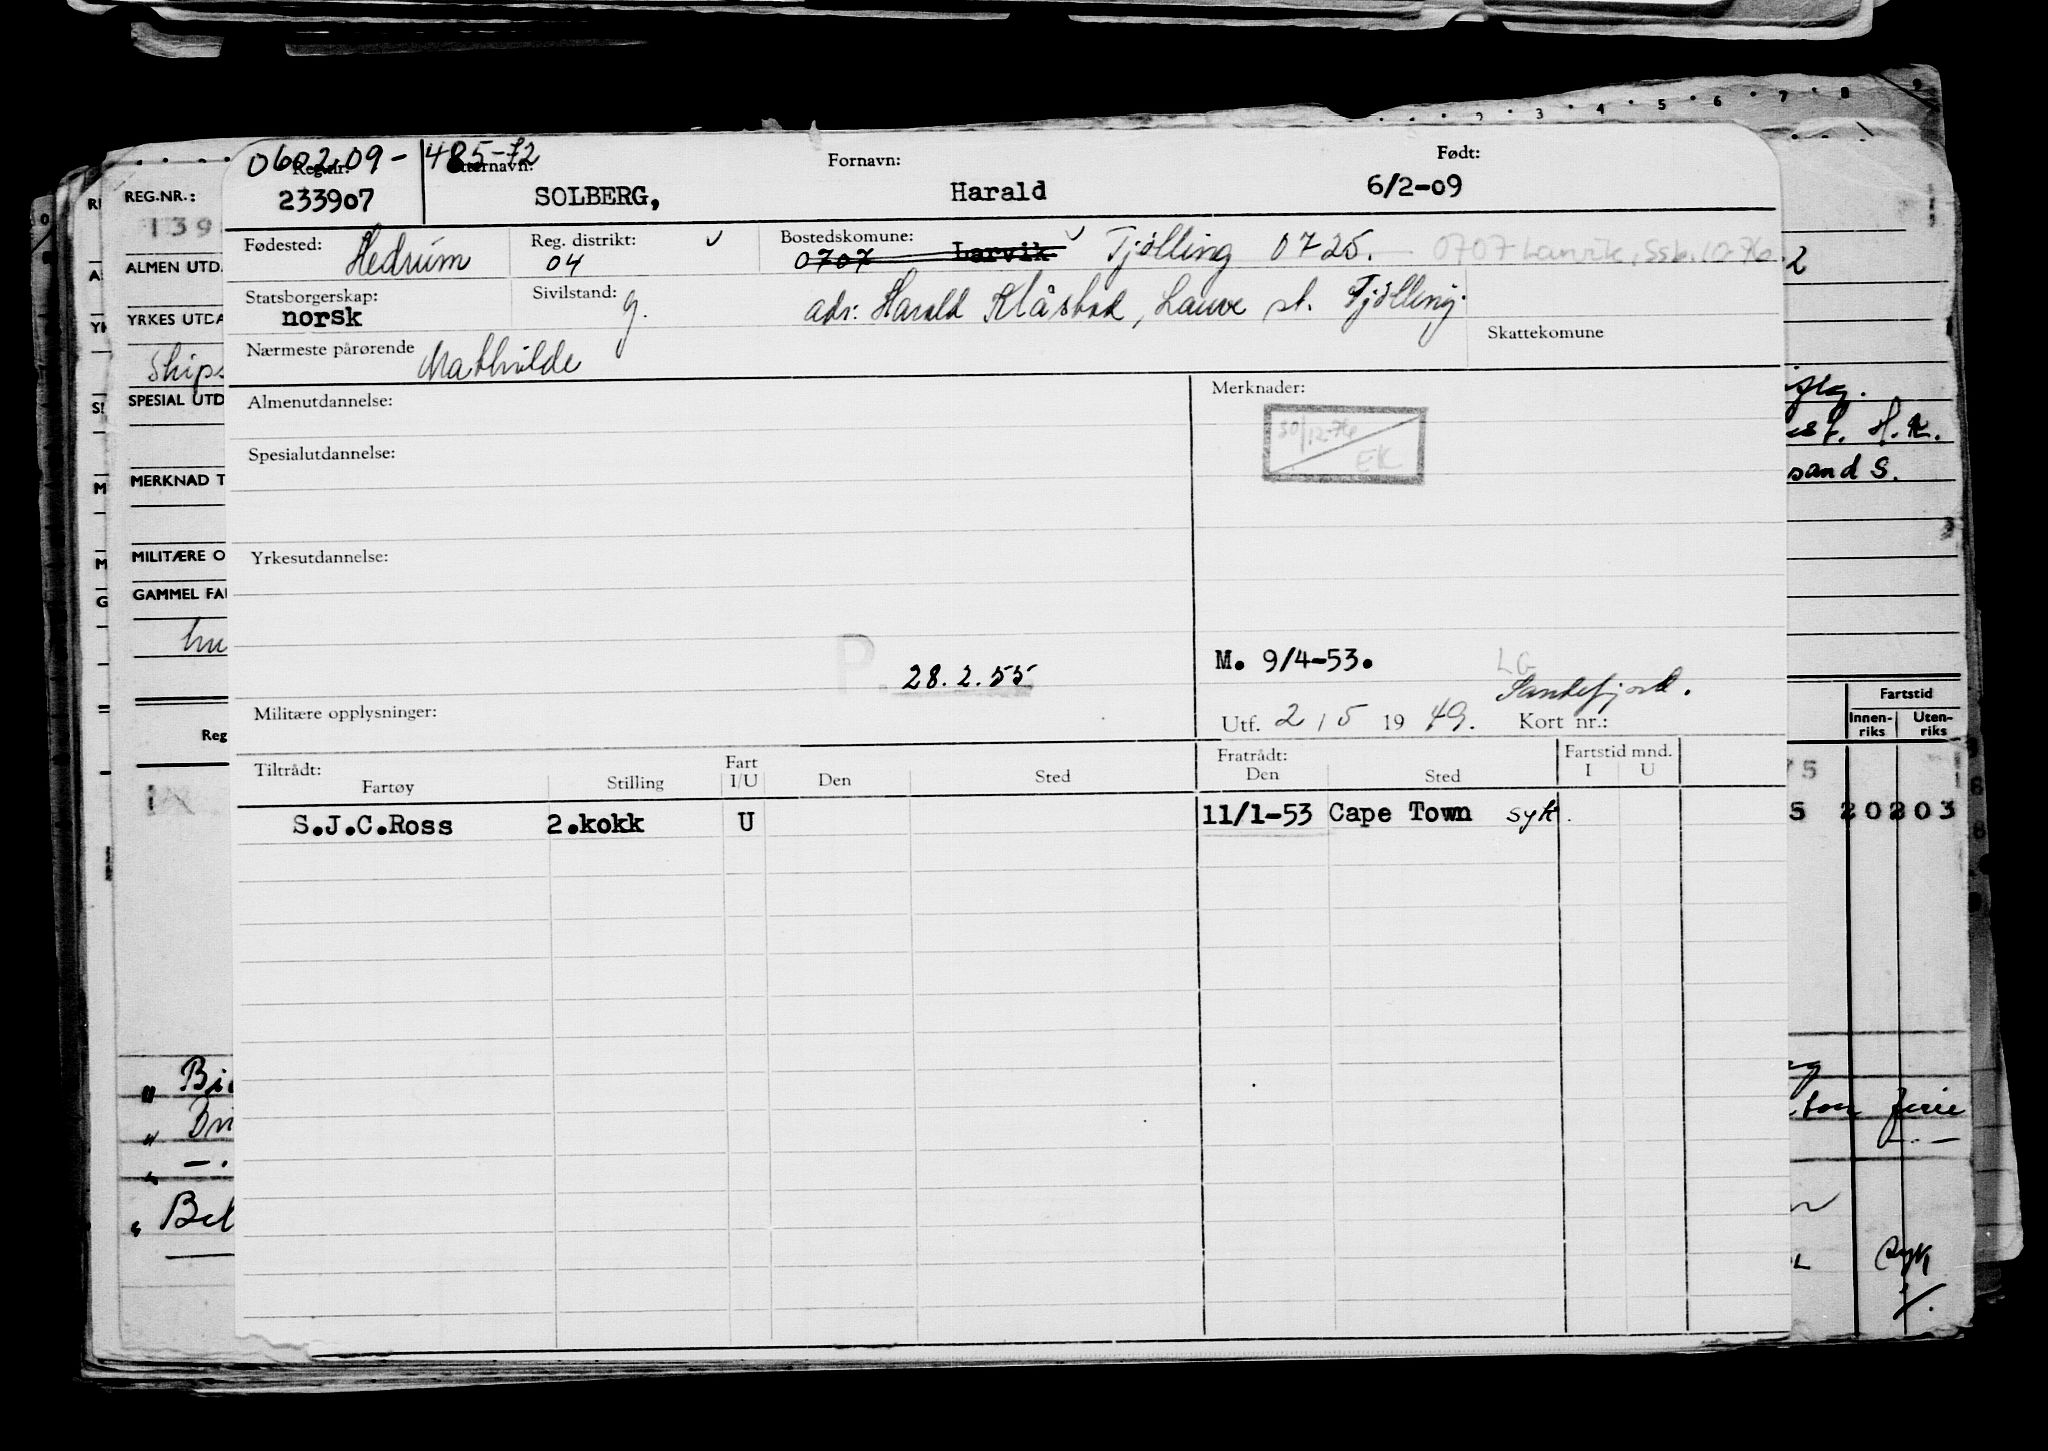 9
2 3 4 5 6 7 8
0602.09- 485-72
Reg.nr: Etternavn: Fornavn: Født:
REG.NR.: 233907 SOLBERG, Harald 6/2-09
139
Fødested: Hedrum Reg. distrikt: 04 Bostedskomune: 0707 Larvik Tjölling 0725. 0707 Larvik, Ssk. 10-76. 2
ALMEN UTDA
Statsborgerskap: norsk Sivilstand: g. adr: Harald Klåstad, Lauve st. Tjölling.
YRKES UTDA
Nærmeste pårørende Mathilde Skattekomune
Ships
SPESIAL UTD
Almenutdannelse: Merknader:
30/12-76
EK
Spesialutdannelse:
H.K.
MERKNAD T
sand S.
MILITÆRE O
Yrkesutdannelse:
GAMMEL FAR
P. 28.2.55 M. 9/4-53. LG
Sandefjord.
Militære opplysninger: Utf. 2/5 1949. Kort nr.:
Fartstid
Innen-riks Uten-riks
Reg
Tiltrådt: Fratrådt: Fartstid mnd.
Fartøy Stilling Fart I/U Den Sted Den Sted I U
75
S.J.C.Ross 2.kokk U 11/1-53 Cape Town syk.
S 20203
" Bi
"
ton ferie
" -.
" Bel
syk